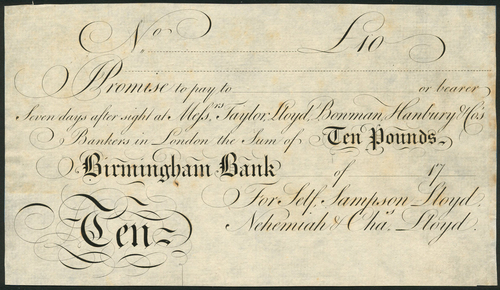 No £10
I Promise to pay to or bearer
Seven days after sight at Mess.rs Taylor, Lloyd, Bowman, Hanbury & Co's
Bankers in London the Sum of Ten Pounds
Birmingham Bank of 17
For Self, Sampson Lloyd
Nehemiah & Cha.s Lloyd.
Ten